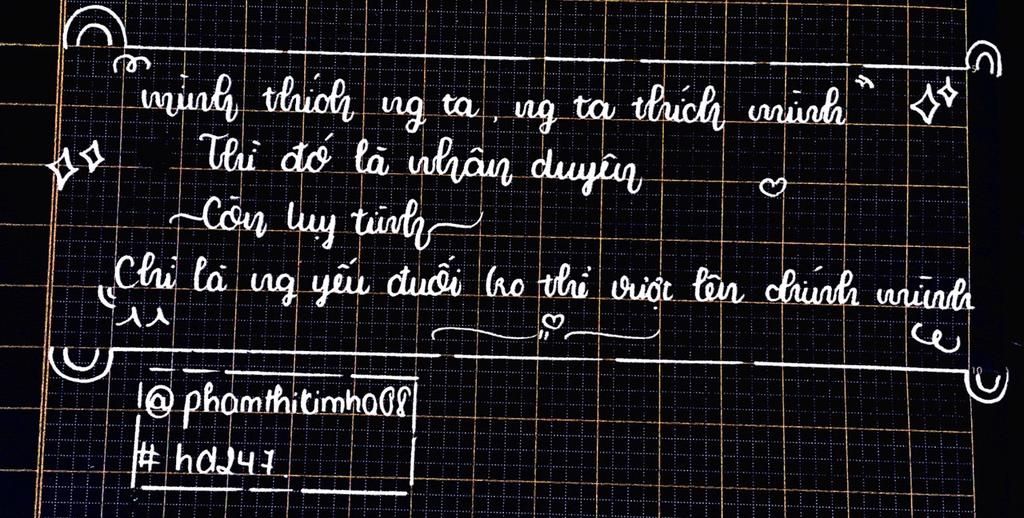 mình thích ng ta, ng ta thích mình
Thì đó là nhân duyên
Còn luỵ tình
Chỉ là ng yếu đuối ko thể vượt lên chính mình
@phamthikimha08
#hd247